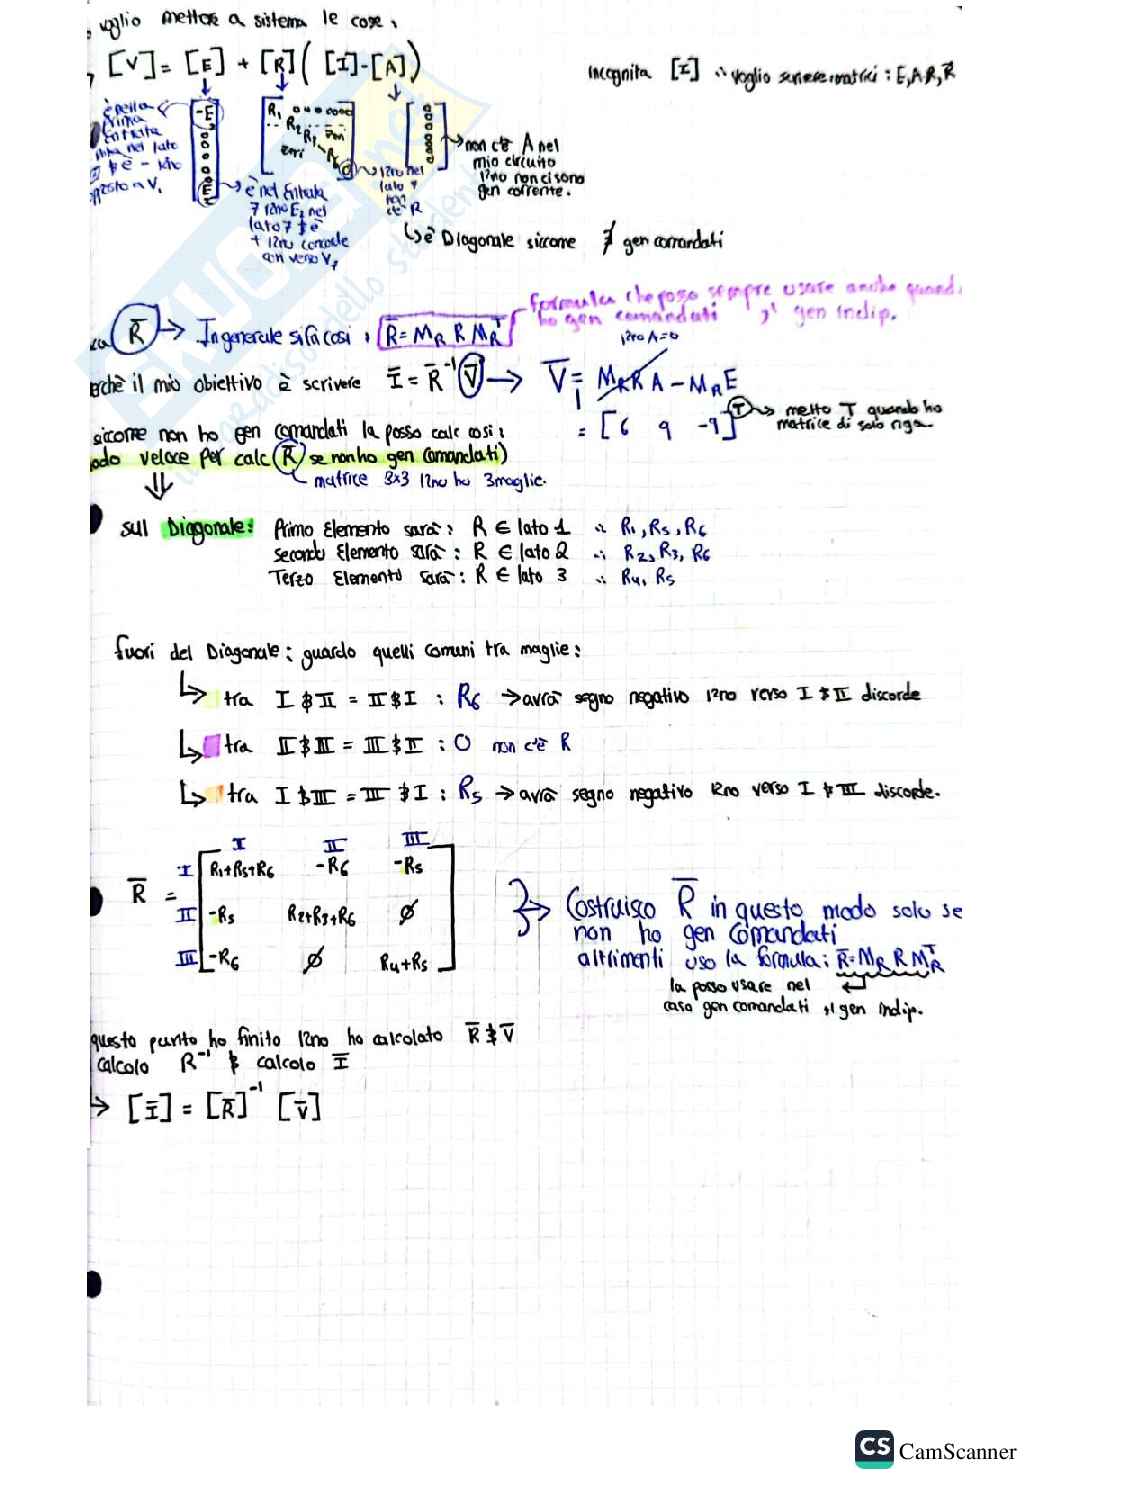 voglio mettere a sistema le cose,
[V] = [E] + [R] ( [I]-[A] )
incognita [I] ∴ voglio scrivere matrici : E, A, R, R̄
è nella prima entrata
-E
R₁ 0 0 0 0
R₂
zeri
non c'è A nel
mio circuito
12no non ci sono
gen corrente.
è nel entrata
7 12no E₂ nel
lato 7 & è
+ 12no concorde
con verso V₇
12no nel
lato 7
non
c'è R
↳ è Diagonale siccome ∄ gen comandati
formula che posso sempre usare anche quand
ho gen comandati gen indip.
R̄ → In generale si fa così : R̄ = M_R R M_R^T
12no A=0
erchè il mio obiettivo è scrivere Ī = R̄⁻¹ V̄ → V̄ = M_R R A - M_R E
= [6 9 -9]^T → metto T quando ho
matrice di sola riga
siccome non ho gen comandati la posso calc così :
odo veloce per calc R̄ se non ho gen comandati)
matrice 3x3 12no ho 3 maglie.
sul Diagonale: Primo Elemento sarà : R ∈ lato 1 ∴ R₁, R₅, R₆
secondo Elemento sarà : R ∈ lato 2 ∴ R₂, R₃, R₆
Terzo Elemento sarà : R ∈ lato 3 ∴ R₄, R₅
fuori del Diagonale : guardo quelli comuni tra maglie :
↳ tra I & II = II & I : R₆ → avrà segno negativo 12no verso I & II discorde
↳ tra II & III = III & II : 0 non c'è R
↳ tra I & III = III & I : R₅ → avrà segno negativo 12no verso I & III discorde.
I II III
I R₁+R₅+R₆ -R₆ -R₅
R̄ =
II -R₅ R₂+R₃+R₆ ∅
III -R₆ ∅ R₄+R₅
Costruisco R̄ in questo modo solo se
non ho gen comandati
altrimenti uso la formula : R̄ = M_R R M_R^T
la posso usare nel
caso gen comandati gen indip.
questo punto ho finito 12no ho calcolato R̄ & V̄
calcolo R⁻¹ & calcolo Ī
→ [Ī] = [R̄]⁻¹ [V̄]
CS CamScanner